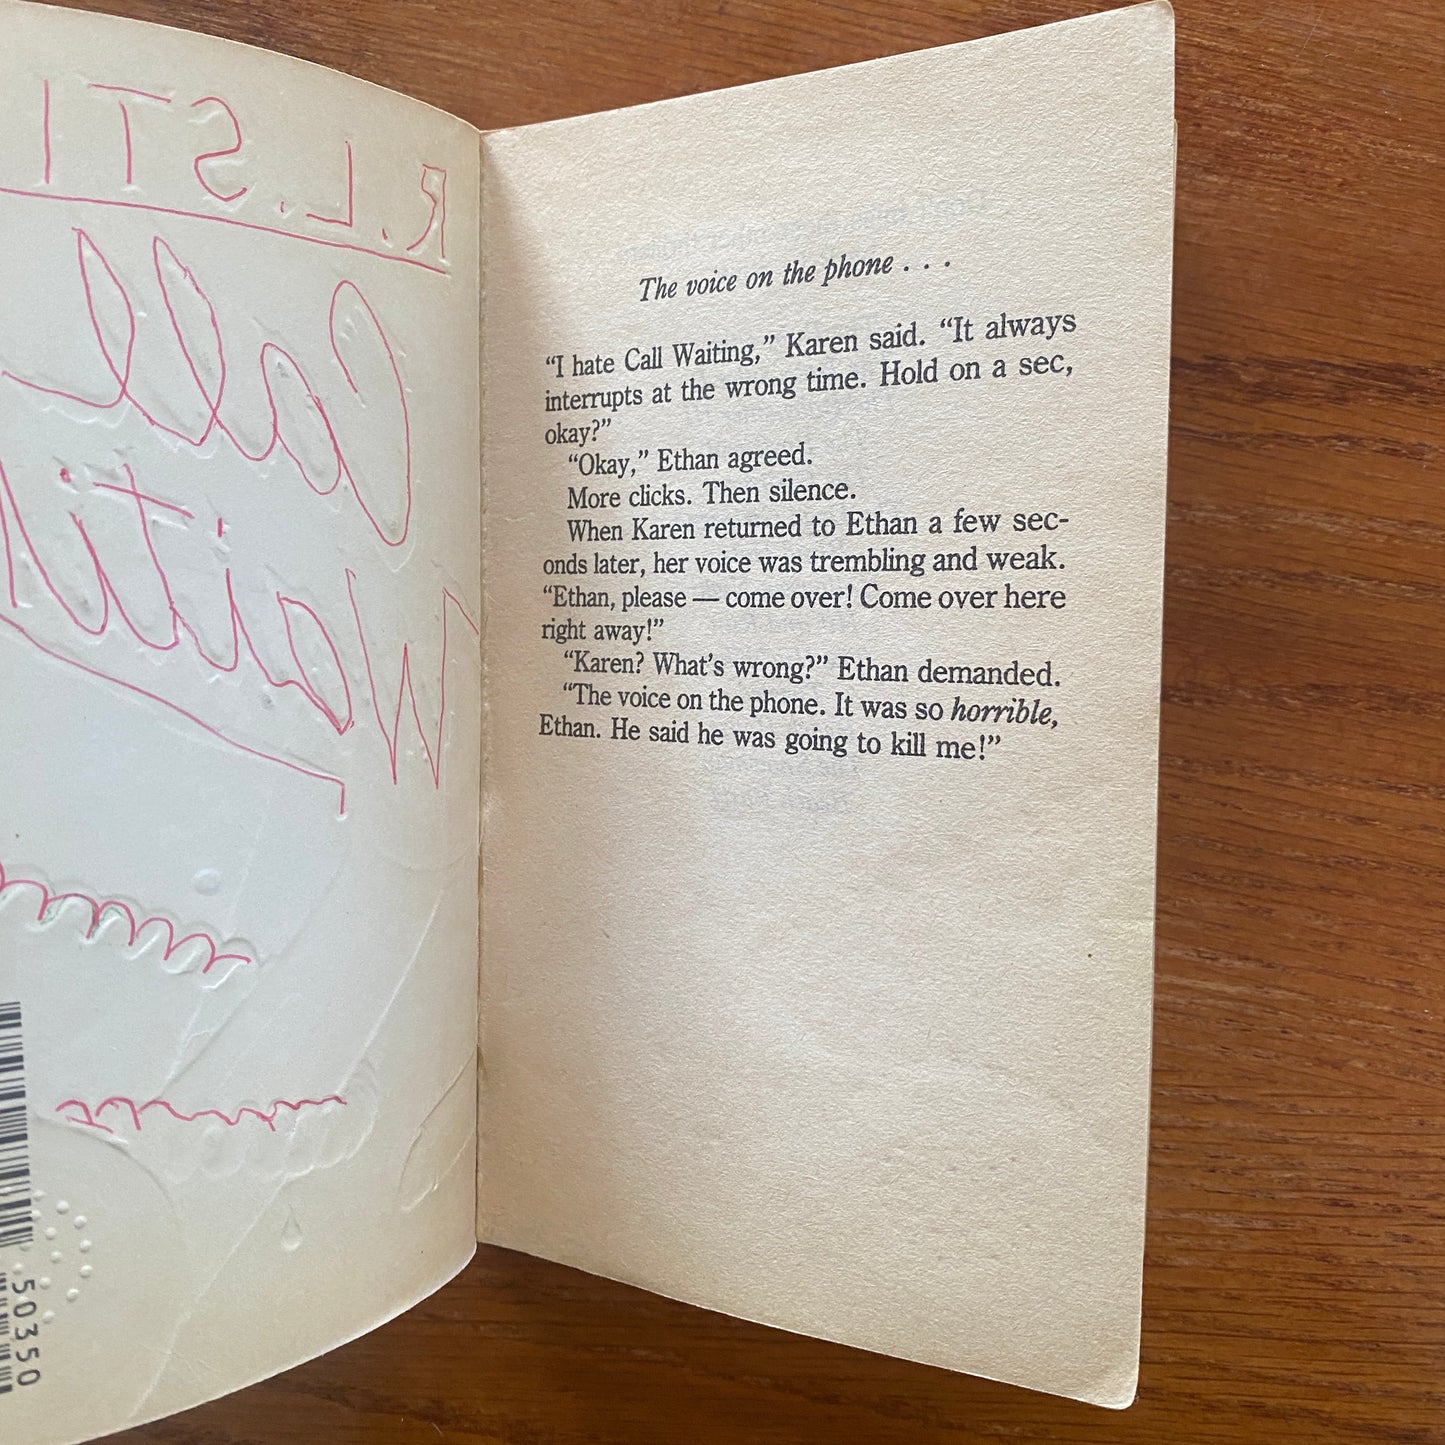 R.L.STI
Call
Waiti
50350
The voice on the phone . . .
“I hate Call Waiting,” Karen said. “It always
interrupts at the wrong time. Hold on a sec,
okay?”
“Okay,” Ethan agreed.
More clicks. Then silence.
When Karen returned to Ethan a few sec-
onds later, her voice was trembling and weak.
“Ethan, please — come over! Come over here
right away!”
“Karen? What’s wrong?” Ethan demanded.
“The voice on the phone. It was so horrible,
Ethan. He said he was going to kill me!”